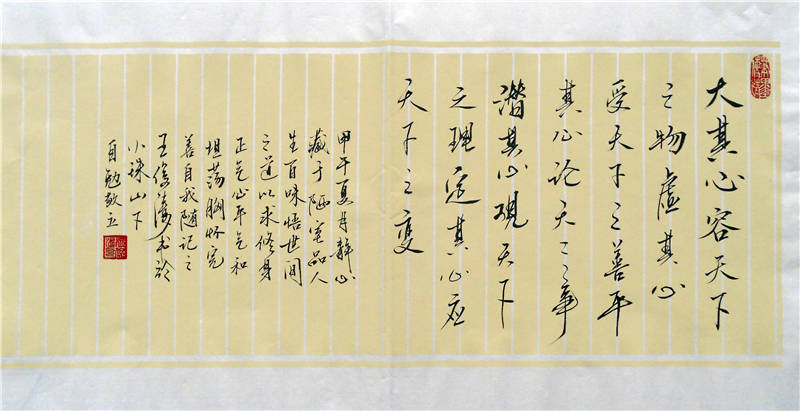 大其心容天下
之物虚其心
受天下之善平
其心论天下之事
潜其心观天下
之理定其心应
天下之变
甲午夏月静心
藏于陋室品人
生百味悟世间
之道以求修身
正气心平气和
坦荡胸怀完
善自我随记之
王俊涛书於
小珠山下
自勉敬立